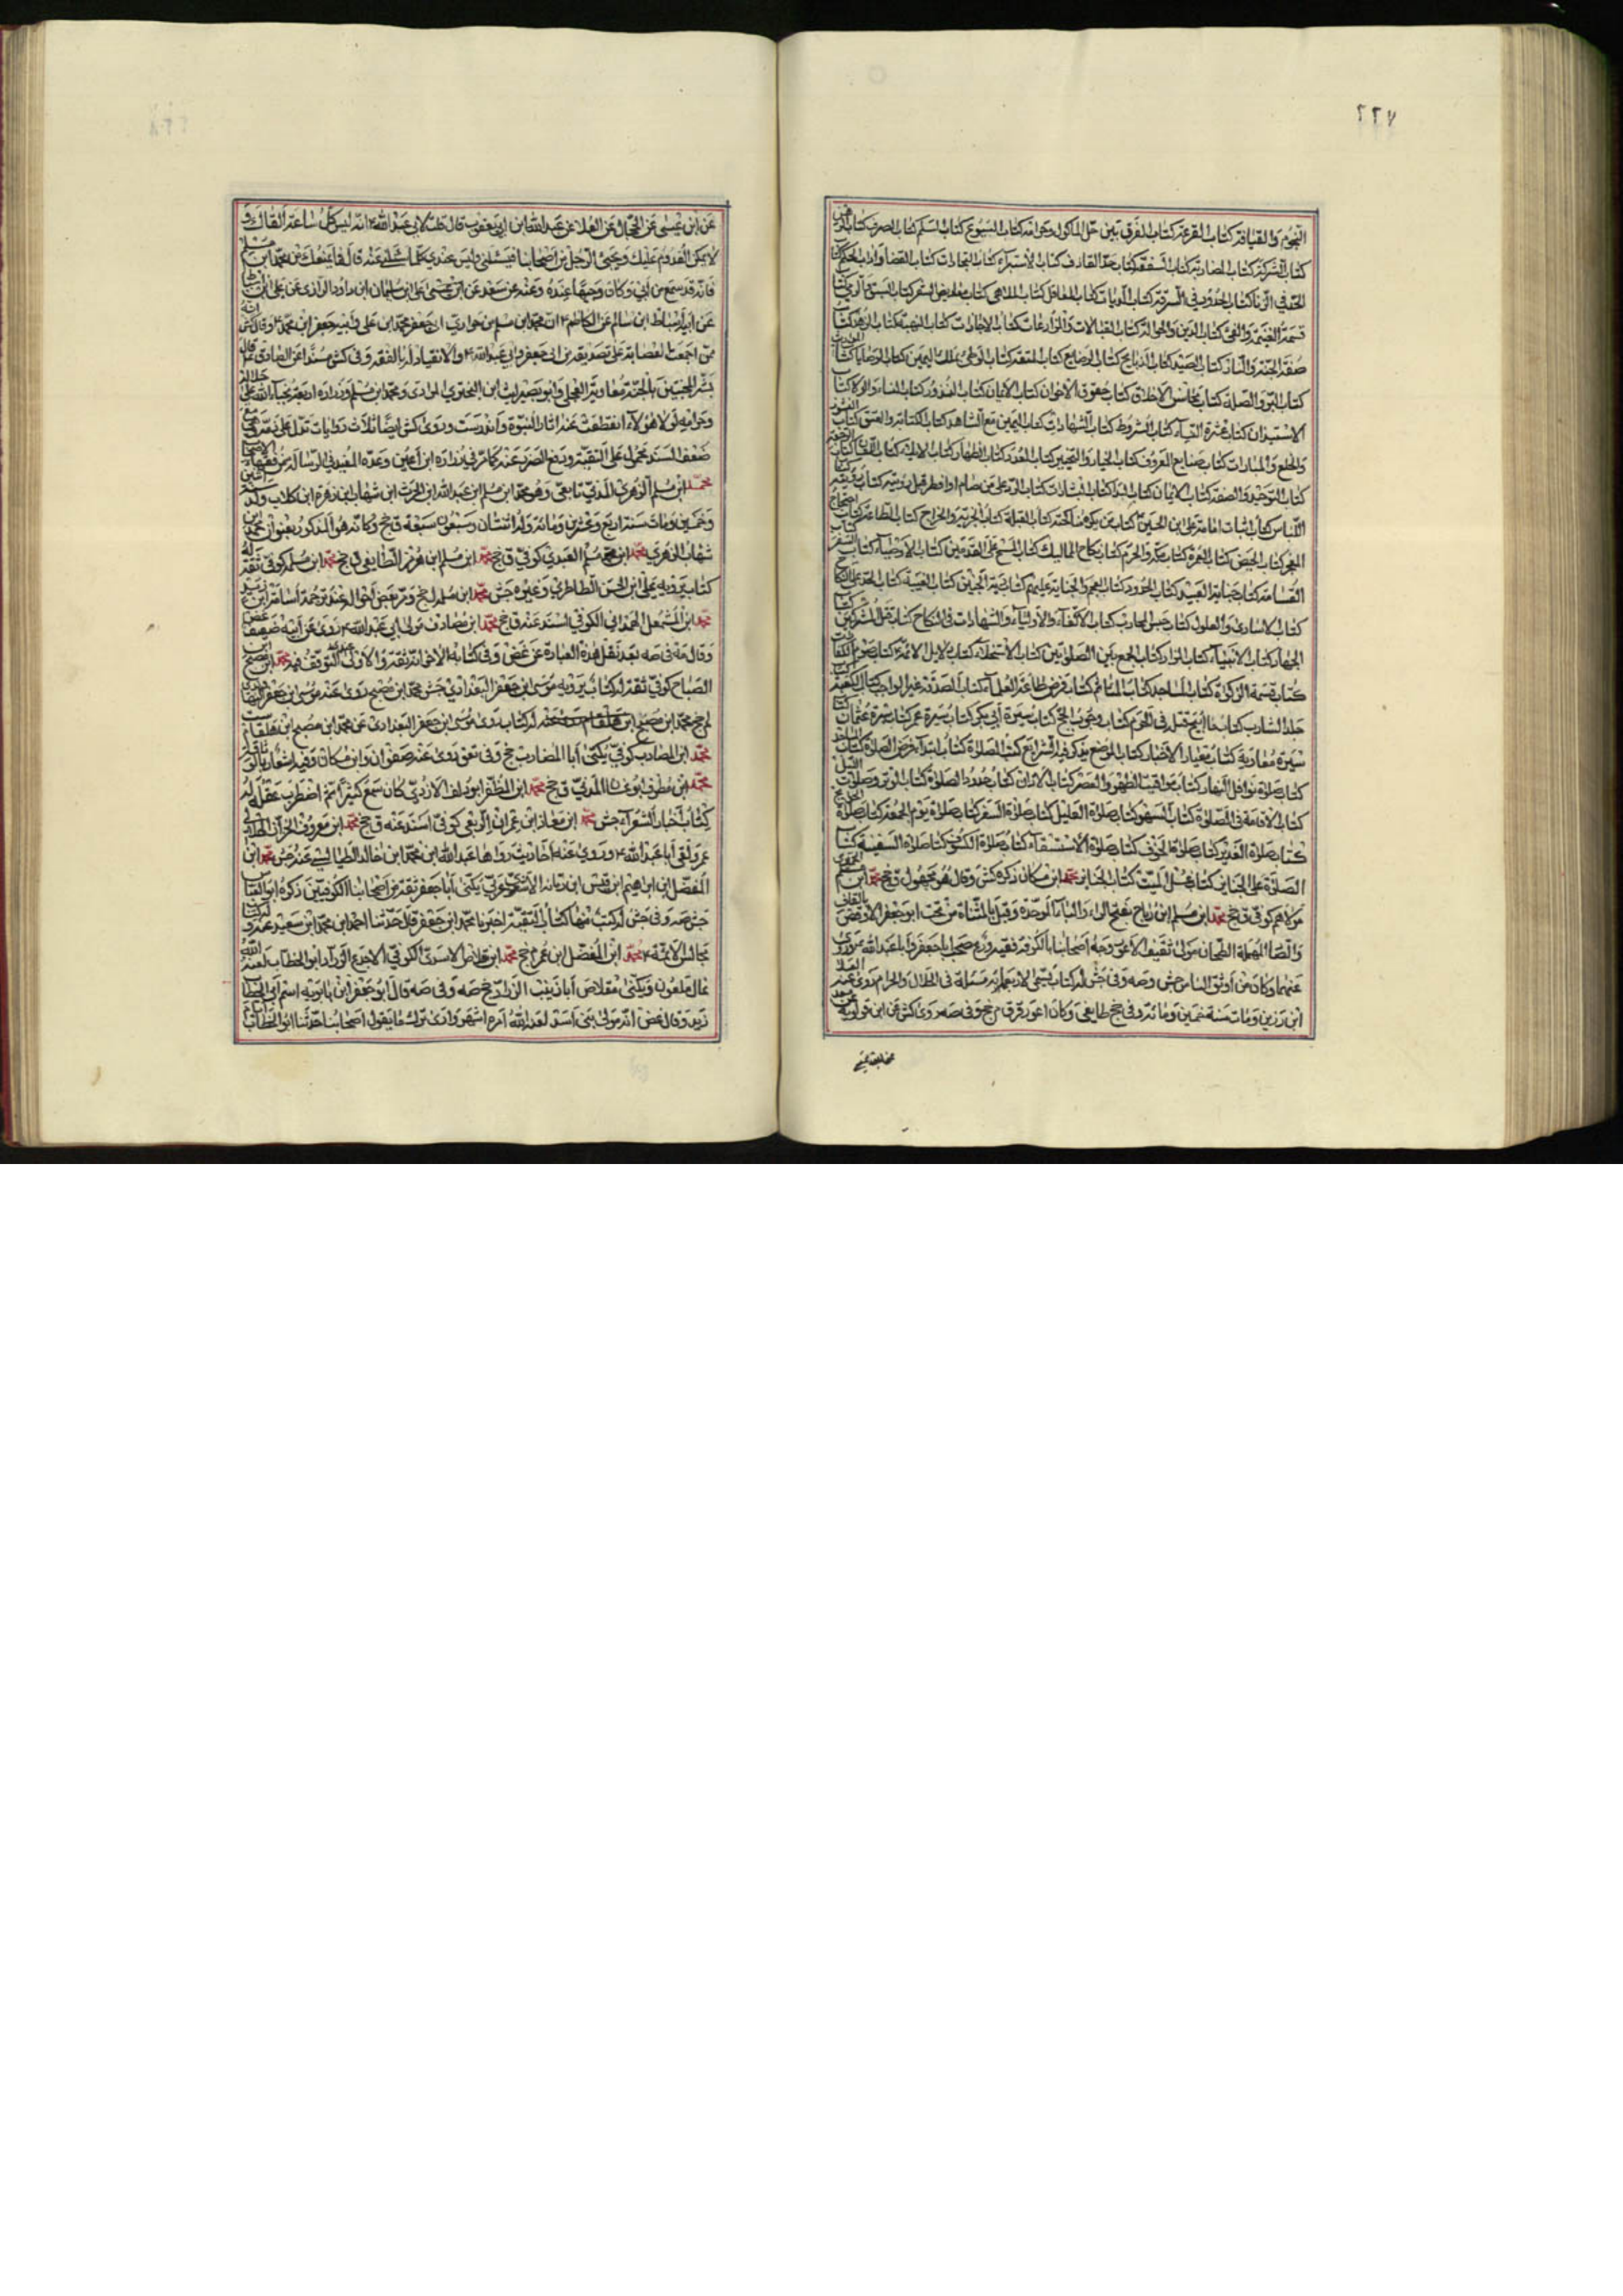 ٢٢٧
النجوم والقيافة كتاب القرعة كتاب الفرق بين حل المأكول وحرامه كتاب البيوع كتاب السلم كتاب الصرف كتاب الرهن
كتاب الشركة كتاب المضاربة كتاب الشفعة كتاب حد القاذف كتاب الاستبراء كتاب التجارات كتاب القضاء وآداب الحكم كتاب
الحد في الزنا كتاب الحدود في السرقة كتاب الديات كتاب المعاقل كتاب الملاهي كتاب معاريض الشعر كتاب السبق والرمي كتاب
قسمة الغنيمة والفيء كتاب الدين والحوالة كتاب القبالات والمزارعات كتاب الاجارات كتاب الهبة كتاب الزهد كتاب
صفة الجنة والنار كتاب الصيد كتاب الذبايح كتاب الرضاع كتاب المتعة كتاب الوطي بملك اليمين كتاب الوصايا كتاب
كتاب البر والصلة كتاب محاسن الاخلاق كتاب حقوق الاخوان كتاب الايمان كتاب النذور كتاب النساء والولاء كتاب
الاستيذان كتاب عشرة النساء كتاب الشروط كتاب الشهادات كتاب اليمين مع الشاهد كتاب الكتابة والعتق كتاب
والخلع والمبارات كتاب صنايع المعروف كتاب الخيار والتخيير كتاب العدد كتاب الظهار كتاب الايلاء كتاب اللعان كتاب
كتاب التوحيد والصفة كتاب الايمان كتاب البداء كتاب البشارات كتاب الرد على من صام او افطر قبل رؤيته كتاب
اللباس كتاب اثبات امامة علي ابن الحسين كتاب من يكره مناكحته كتاب القبلة كتاب الجزية والخراج كتاب الطاعة كتاب
المعجز كتاب الحيض كتاب العمرة كتاب مكة والحرم كتاب نكاح المماليك كتاب المسح على القدمين كتاب الاوصياء كتاب السفر
القسامة كتاب جناية العبيد كتاب الحدود كتاب العجم والجناية عليهم كتاب دية الجنين كتاب الغيبة كتاب الحث على النكاح
كتاب الاسارى والغلول كتاب حبس المحارب كتاب الاكفاء والاولياء والشهادات في النكاح كتاب قتل المشركين
الجهاد كتاب الانبياء كتاب النوادر كتاب الجمع بين الصلوتين كتاب الاستخلاف كتاب دلايل الائمة كتاب صوم
كتاب قسمة الزكوة كتاب المساجد كتاب الماتم كتاب فرض طاعة العلماء كتاب الصدقة غير الواجبة كتاب الكعبة
جلد الشارب كتاب ما ابيح قتله في الحرم كتاب وجوب الحج كتاب سيرة ابي بكر كتاب سيرة عمر كتاب سيرة عثمان
سيرة معاوية كتاب معيار الاخبار كتاب الموضح يذكر فيه الشرايع كتب الصلوة كتاب ابتداء فرض الصلوة كتاب
كتاب صلوة نوافل النهار كتاب مواقيت الظهر والعصر كتاب الاذان كتاب حدود الصلوة كتاب الوتر وصلوة الليل
كتاب الاقامة في الصلوة كتاب السهو كتاب صلوة العليل كتاب صلوة السفر كتاب صلوة يوم الجمعة كتاب صلوة
كتاب صلوة الغدير كتاب صلوة الخوف كتاب صلوة الاستسقاء كتاب صلوة الكسوف كتاب صلوة السفينة كتاب
الصلوة على الجنايز كتاب غسل الميت كتاب الجنايز محمد ابن مسكان ذكره كش وقال هو مجهول ق جخ محمد ابن مسلم
مولاهم كوفي ق جخ محمد ابن مسلم ابن رباح بفتح الراء والباء الموحدة وقيل بالمثناة من تحت ابو جعفر الاوقص
والصاد المهملة الطحان مولى ثقيف الاعور وجه اصحابنا بالكوفة فقيه ورع صحب ابا جعفر وابا عبد الله وروى
عنهما وكان من اوثق الناس جش وصه وفي جش له كتاب يسمى الاربعمائة مسئلة في الحلال والحرام روى عنه العلاء
ابن رزين ومات سنة خمسين ومائة وفي جخ طايفي وكان اعور قر ق م جخ وفي صه روى كش عن ابن قولويه عن سعد
عن ابن عيسى عن الحجال عن العلا عن عبد الله ابن ابي يعفور قال قلت لابي عبد الله انه ليس كل ساعة القاك و
لا يمكن القدوم عليك ويجيئ الرجل من اصحابنا فيسئلني وليس عندي كلما يسئلني عنه قال فما يمنعك من محمد ابن مسلم
فانه قد سمع من ابي وكان وجيها عنده وعنه عن سعد عن ابن عيسى عن علي ابن سليمان ابن داود الرازي عن علي ابن اسباط
عن ابيه اسباط ابن سالم عن الكاظم ان محمد ابن مسلم من حواري ابي جعفر محمد ابن علي وابنه جعفر ابن محمد وقال كش انه
ممن اجمعت العصابة على تصديقه من ابي جعفر وابي عبد الله والانقياد له بالفقه وفي كش مسندا عن الصادق قال
بشر المخبتين بالجنة معاوية العجلي وابو بصير ليث ابن البختري المرادي ومحمد ابن مسلم وزرارة اربعة نجباء امناء الله على
وحرامه لولا هؤلاء انقطعت عنه اثار النبوة واندرست وروى كش ايضا ثلاث روايات تدل على ذمه مع
ضعف السند محمول على التقية ودفع الضرر عنه كما مر في زرارة ابن اعين وعده المفيد في الرسالة من فقهاء الاصحاب
محمد ابن مسلم الزهري المدني تابعي وهو محمد ابن مسلم ابن عبيد الله ابن الحرث ابن شهاب ابن زهرة ابن كلاب ولد سنة اثنتين
وخمسين ومات سنة اربع وعشرين ومائة وله اثنتان وسبعون سنة ق جخ وكانه هو المذكور بعنوان محمد ابن
شهاب الزهري محمد ابن مسلم العبدي كوفي ق جخ محمد ابن مسلم ابن هرمز الطايفي ق جخ محمد ابن مسلمة كوفي ثقة له
كتاب يرويه علي ابن الحسن الطاطري وغيره جش محمد ابن مسلمة جخ ومر بعض احواله عند ترجمة اسامة ابن زيد
محمد ابن المشمعل الهمداني الكوفي اسند عنه ق جخ محمد ابن مصادف مولى ابي عبد الله روى عن ابيه ضعيف غض
وقال مه في صه بعد نقل هذه العبارة عن غض وفي كتابه الاخر انه ثقة والاولى عندي التوقف فيه محمد ابن مصبح ابن
الصباح كوفي ثقة له كتاب يرويه موسى ابن جعفر البغدادي جش محمد ابن مصبح روى عنه موسى ابن جعفر البغدادي
لم جخ محمد ابن مصبح ابن هلقام له كتاب روى موسى ابن جعفر البغدادي عن محمد ابن مصبح ابن هلقام ست
محمد ابن المضارب كوفي يكنى ابا المضارب جخ وفي تعق روى عنه صفوان وابن مسكان وفيه اشعار بالوثاقة
محمد ابن مطرف ابو غسان المدني ق جخ محمد ابن المظفر ابو دلف الازدي كان سمع كثيرا ثم اضطرب عقله له
كتاب اخبار الشعراء جش محمد ابن معاذ ابن عمران الربعي كوفي اسند عنه ق جخ محمد ابن معروف الخزاز الهلالي
عمر ولقي ابا عبد الله وروي عنه احاديث رواها عبد الله ابن محمد ابن خالد الطيالسي عنه جش محمد ابن
المفضل ابن ابراهيم ابن قيس ابن رمانة الاشعري عربي يكنى ابا جعفر ثقة من اصحابنا الكوفيين ذكره ابو العباس
جش صه وفي جش له كتب منها كتاب التقية اخبرنا محمد ابن جعفر قال حدثنا احمد ابن محمد ابن سعيد عنه و
مجالس الائمة محمد ابن المفضل ابن عمر م جخ محمد ابن مقلاص الاسدي الكوفي الاجدع الزراد ابو الخطاب لعنه الله
غال ملعون ويكنى مقلاص ابا زينب الزراد جخ صه وفي صه قال ابو جعفر ابن بابويه اسم ابي الخطاب
زيد وقال غض انه مولى بني اسد لعنه الله امره اشهر وارى ترك ما يقول اصحابنا حدثنا ابو الخطاب